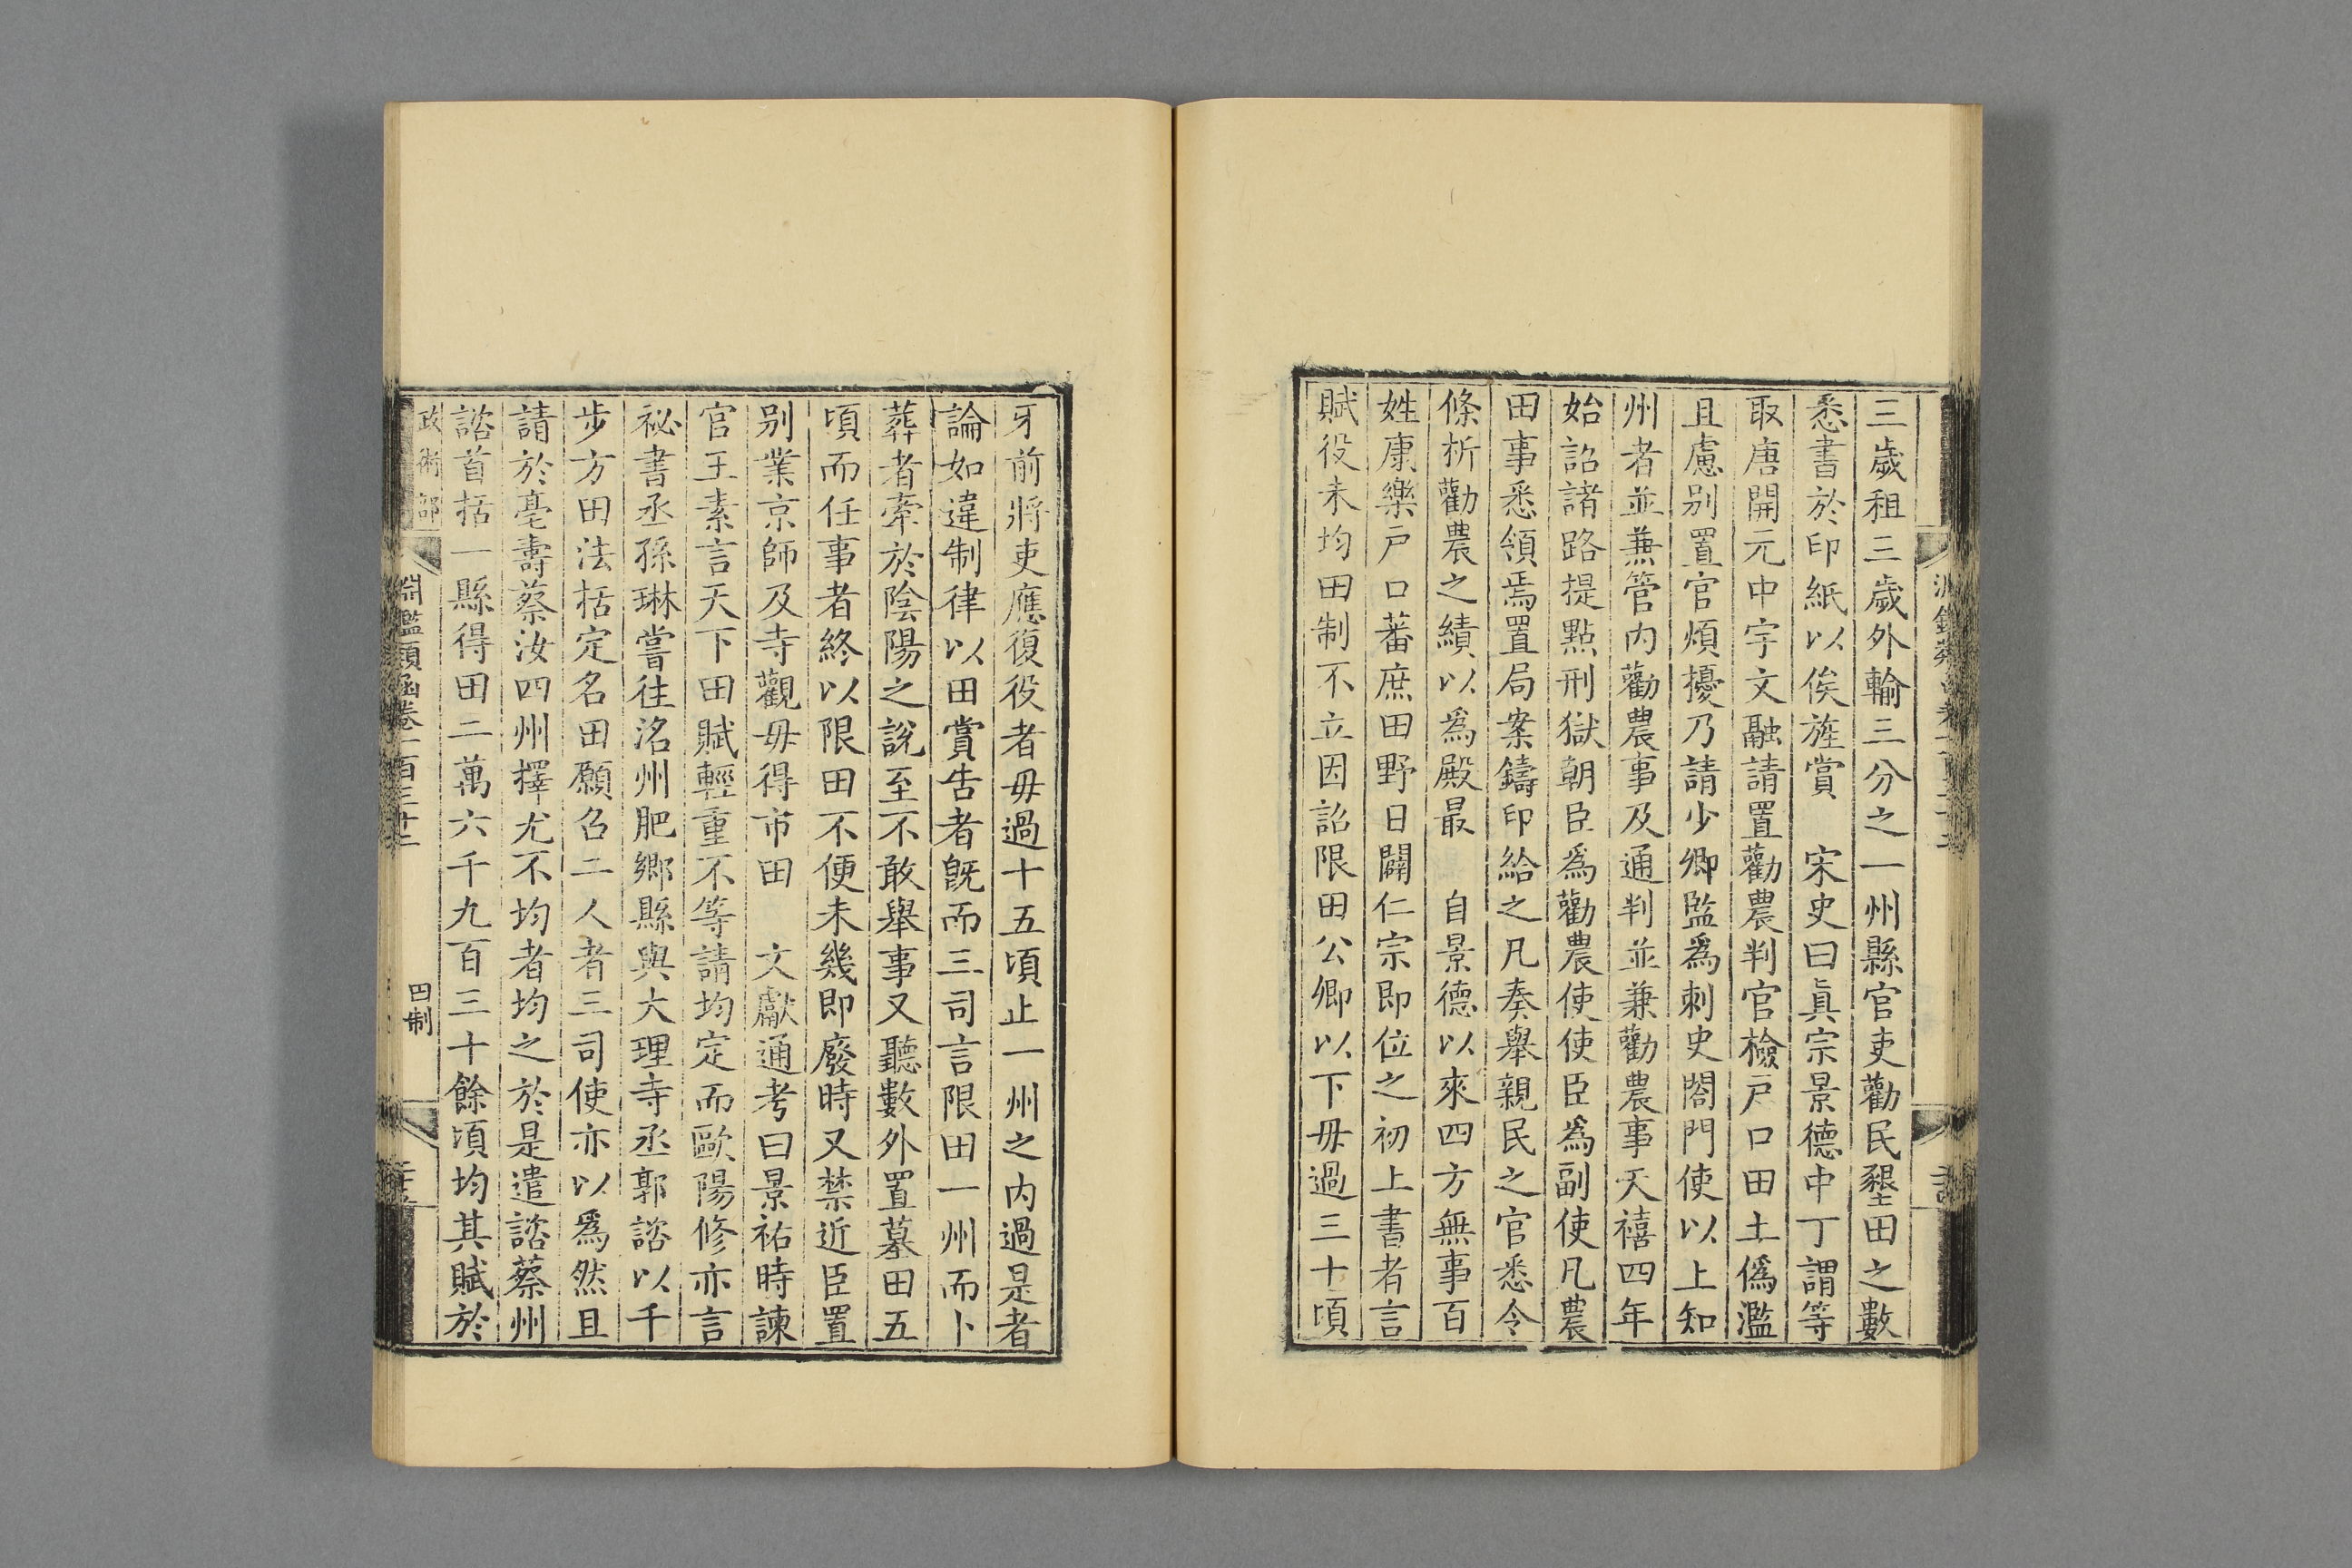 三歲租三歲外輸三分之一州縣官吏勸民墾田之數
悉書於印紙以俟旌賞　宋史曰眞宗景德中丁謂等
取唐開元中宇文融請置勸農判官檢戸口田土僞濫
且慮别置官煩擾乃請少卿監爲刺史閤門使以上知
州者並兼管内勸農事及通判並兼勸農事天禧四年
始詔諸路提點刑獄朝臣爲勸農使使臣爲副使凡農
田事悉領焉置局案鑄印給之凡奏舉親民之官悉令
條析勸農之績以爲殿最　自景德以來四方無事百
姓康樂戸口蕃庶田野日闢仁宗即位之初上書者言
賦役未均田制不立因詔限田公卿以下毋過三十頃
牙前將吏應復役者毋過十五頃止一州之内過是者
論如違制律以田賞告者旣而三司言限田一州而卜
葬者牽於陰陽之說至不敢舉事又聽數外置墓田五
頃而任事者終以限田不便未幾即廢時又禁近臣置
别業京師及寺觀毋得市田　文獻通考曰景祐時諫
官王素言天下田賦輕重不等請均定而歐陽修亦言
祕書丞孫琳嘗往洺州肥鄉縣與大理寺丞郭諮以千
步方田法括定名田願召二人者三司使亦以爲然且
請於亳壽蔡汝四州擇尤不均者均之於是遣諮蔡州
諮首括一縣得田二萬六千九百三十餘頃均其賦於
政術部
淵鑑類函卷一百三十二
田制